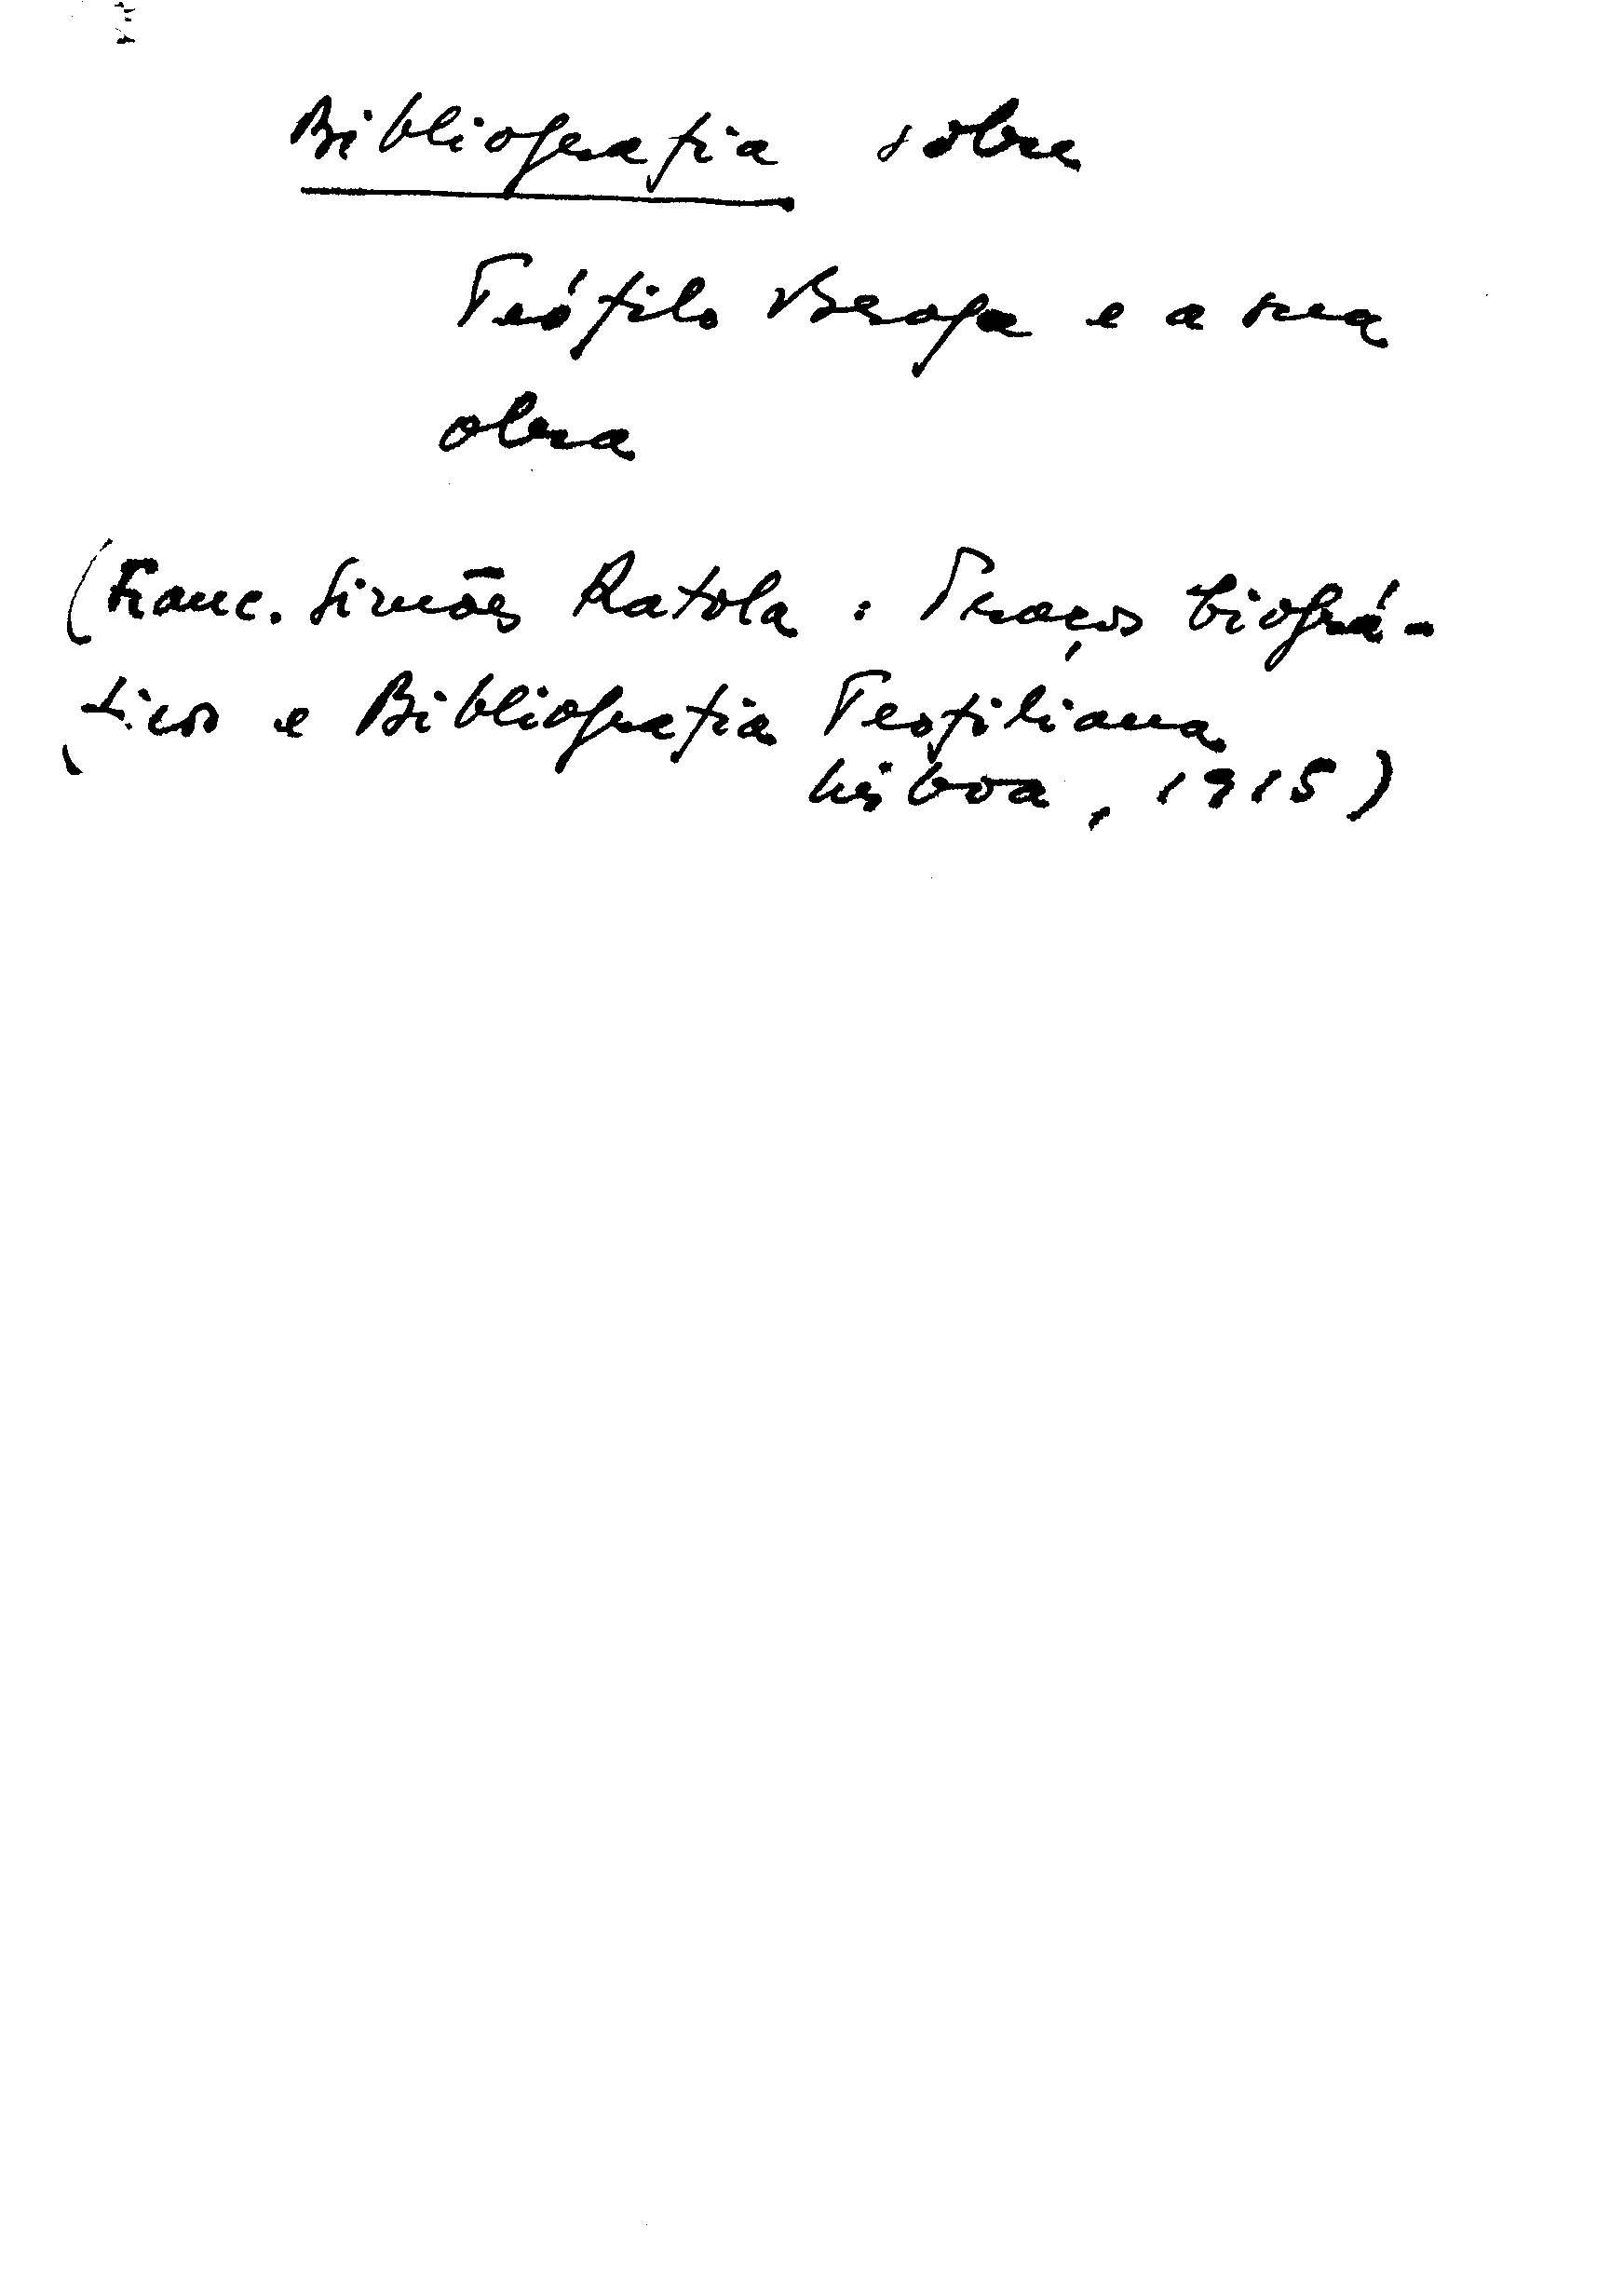 Bibliografia sobre
Teófilo Braga e a sua
obra
(Franc. Simões Ratola : Traços biográ-
ficos e Bibliografia Teofiliana
Lisboa, 1915)